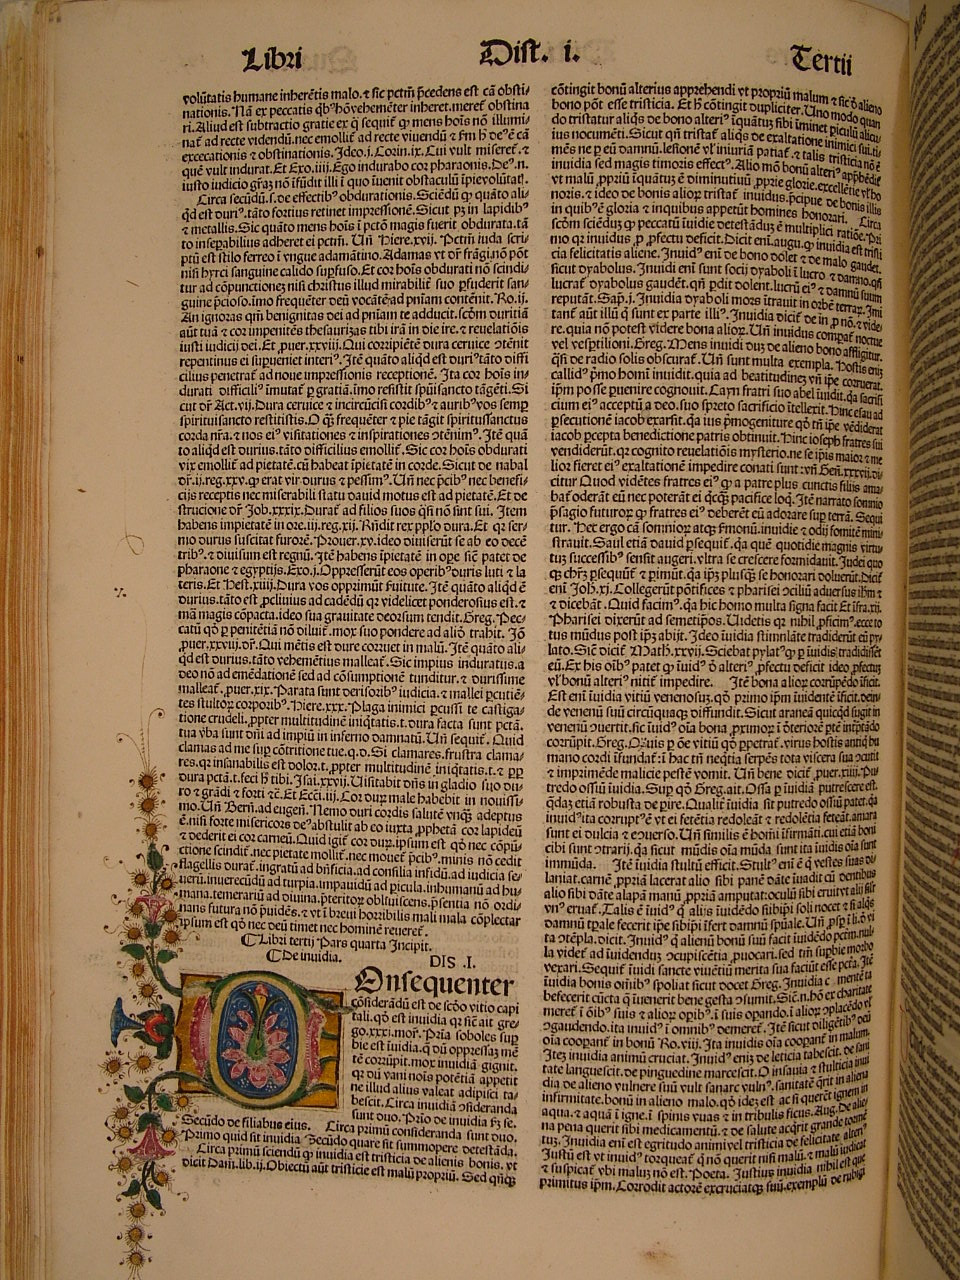 Libri
Dist. i.
Tertii
volūtatis humane inherētis malo. ⁊ sic pctm̄ p̄cedens est cā obsti-
nationis. Nā ex peccatis
ri. Aliud est subtractio gratie
nat̄ ad recte videndū. nec emollit̄ ad recte viuendū
excecationis ⁊ obstinationis. Ideo. j. Corin. ix. Cui vult miseret̄. ⁊
quē vult indurat. Et Exo. iiij. Ego indurabo cor pharaonis.
iusto iudicio
Circa secūdū. s. de effectibꝰ obdurationis. Sciēdū ꝙ quāto ali-
qd est duriꝰ. tāto fortius retinet impressionē. Sicut pꝫ in lapidibꝰ
⁊ metallis. Sic quāto mens hoīs ī pctō magis fuerit obdurata. tā
to insepabilius adheret ei pctm̄. Uñ Hiere. xvij. Pctm̄ iuda scri-
ptū est stilo ferreo ī vngue adamātino. Adamas vt dr̄ frāgi. nō pōt
nisi hyrci sanguine calido supfuso. Et cor hoīs obdurati nō scindi-
tur ad cōpunctionez nisi christus illud mirabilit̄ suo pfuderit san-
guine p̄cioso. īmo frequēter deū vocātē ad pniam contēnit. Ro. ij.
An ignoras qm̄ benignitas dei ad pniam te adducit. scd̄m duritiā
aūt tuā ⁊ cor impenitēs thesaurizas tibi irā in die ire. ⁊ reuelatiōis
iusti iudicij dei. Et ꝓuer. xxviij. Qui corripiētē dura ceruice ɔtēnit
repentinus ei supueniet interiꝰ. Itē quāto aliqd est duriꝰ tāto diffi
cilius penetrat̄ ad noue impressionis receptionē. Ita cor hoīs in-
durati difficiliꝰ īmutat̄ p gratiā. īmo resistit spūisancto tāgēti. Si
cut dr̄ Act. vij. Dura ceruice ⁊ incircūcisi cordibꝰ ⁊ auribꝰ vos semp
spirituisancto restitistis. O qꝫ frequēter ⁊ pie tāgit spiritussanctus
corda nr̄a. ⁊ nos eiꝰ visitationes ⁊ inspirationes ɔtēnimꝰ. Itē quā
to aliqd est durius. tāto difficilius emollit̄. Sic cor hoīs obdurati
vix emollit̄ ad pietatē. cū habeat īpietatē in corde. Sicut de nabal
dr̄. ij. reg. xxv. ꝙ erat vir durus ⁊ pessimꝰ. Uñ nec p̄cibꝰ nec benefi-
cijs receptis nec miserabili statu dauid motus est ad pietatē. Et de
strucione dr̄ Job. xxxix. Durat̄ ad filios suos qsi nō sint sui. Item
habens impietatē in ore. iij. reg. xij. Rn̄dit rex pplo dura. Et qꝛ ser-
mo durus suscitat furorē. Prouer. xv. ideo diuiserūt se ab eo decē
tribꝰ. ⁊ diuisum est regnū. Itē habens īpietatē in ope sic̄ patet de
pharaone ⁊ egyptijs. Exo. j. Oppresserūt eos operibꝰ duris luti ⁊ la
teris. Et Hest. xiij. Dura vos opprimūt seruitute. Itē quāto aliqd ē
durius. tāto est ꝓcliuius ad cadēdū qꝛ videlicet ponderosius est. ⁊
mā magis cōpacta. ideo sua grauitate deorsum tendit. Greg. Pec-
catū qd̄ p penitētiā nō diluit̄. mox suo pondere ad aliō trahit. Iō
ꝓuer. xxviij. dr̄. Qui mētis est dure corruet in malū. Itē quāto ali-
qd est durius. tāto vehemētius malleat̄. Sic impius induratus. a
deo nō ad emēdationē sed ad cōsumptionē tunditur. ⁊ durissime
malleat̄. ꝓuer. xix. Parata sunt derisoribꝰ iudicia. ⁊ mallei pcutiē-
tes stultoꝝ corporibꝰ. Hiere. xxx. Plaga inimici percussi te castiga-
tione crudeli. ꝓpter multitudinē iniqtatis. t. dura facta sunt pctā.
tua vba sunt dn̄i ad impiū in inferno damnatū. Uñ sequit̄. Quid
clamas ad me sup cōtritione tue. q. d. Si clamares. frustra clama-
res. qꝛ insanabilis est dolor. t. ꝓpter multitudinē iniqtatis. t. ⁊ ꝓp
dura pctā. t. feci h̄ tibi. Isai. xxvij. Uisitabit dn̄s in gladio suo du-
ro ⁊ grādi ⁊ forti ⁊c̄. Et Ecci. iij. Cor durum male habebit in nouissi-
mo. Uñ Bern̄. ad eugen̄. Nemo duri cordis salutē vnqꝫ adeptus
ē. nisi forte misericors deꝰ abstulit ab eo iuxta ꝓphetā cor lapideū
⁊ dederit ei cor carneū. Quid igit̄ cor durum. ipsum est qd̄ nec cōpū-
ctione scindit̄. nec pietate mollit̄. nec mouet̄ p̄cibꝰ. minis nō cedit
flagellis durat̄. ingratū ad bn̄ficia. ad consilia infidū. ad iudicia se-
uerū. inuerecūdū ad turpia. impauidū ad picula. inhumanū ad hu-
mana. temerariū ad diuina. p̄teritoꝝ obliuiscens. p̄sentia nō ordi-
nans futura nō puidēs. ⁊ vt ī breui horribilis mali mala cōplectar
ipsum est qd̄ nec deū timet nec hominē reueret̄.
⁋ Libri tertij Pars quarta Incipit.
⁋ De inuidia. DIS .I.
Onsequenter
cōsiderādū est de scd̄o vitio capi
tali. qd̄ est inuidia qꝛ sic̄ ait gre-
go. xxxi. mor̄. Pria soboles sup
bie est iuidia. q̄ dū oppressaꝫ mē
tē corrūpit. mox inuidiā gignit.
qꝛ dū vani nois potētiā appetit
ne illud alius valeat adipisci ta-
bescit. Circa inuidiā ɔsideranda
sunt duo. Prīo de inuidia
Secūdo de filiabus eius. Circa primū consideranda sunt duo.
Primo quid sit inuidia Secūdo quare sit summopere detestāda.
Circa primū sciendū ꝙ inuidia est tristicia de alienis bonis. vt
dicit Dam̄. lib. ij. Obiectū aūt tristicie est malū propriū. Sed qn̄qꝫ
cōtingit bonū alterius apprehendi vt propriū malum
bono pōt esse tristicia. Et h̄ cōtingit dupliciter. Uno modo
do tristatur aliqs de bono alteriꝰ
ius nocumēti. Sicut qn̄ tristat̄ aliqs de exaltatione inimici sui.
mēs ne p eū damnū. lesionē vl̓ iniuriā patiat̄. ⁊ talis tristicia nō ē
inuidia sed magis timoris effectꝰ. Alio mō bonū alteriꝰ
vt malū ꝓpriū īquātuꝫ ē diminutiuū ꝓprie glorie. excellētie
noris. ⁊ ideo de bonis alioꝝ tristat̄ inuidus. p̄cipue de bonis illis
in quibꝰ ē gloria ⁊ inquibus appetūt homines honorari. Circa
scd̄m sciēdꝫ ꝙ peccatū īuidie detestādū ē multiplici ratiōe.
mo qꝛ inuidus p ꝓfectu deficit. Dicit eni. augu. ꝙ inuidia est tristi
cia felicitatis aliene. Inuidꝰ eni de bono dolet ⁊ de malo gaudet.
sicut dyabolus. Inuidi eni sunt socij dyaboli ī lucro ⁊ damno.
lucrat̄ dyabolus gaudēt. qn̄ pdit dolent.
reputāt. Sap. j. Inuidia dyaboli mors ītrauit in orbē terraꝝ. Imi
tant̄ aūt illū q̄ sunt ex parte illiꝰ. Inuidia
re. quia nō potest videre bona alioꝝ. Uñ inuidus compat̄ noctue
vel vesptilioni. Greg. Mens inuidi duꝫ de alieno bono affligitur.
qsi de radio solis obscurat̄. Uñ sunt multa exempla. Hostis eniꝫ
callidꝰ p̄mo homī inuidit. quia ad beatitudineꝫ
ipm̄ posse puenire cognouit. Cayn fratri suo abel īuidit. qa sacrifi
cium eiꝰ acceptū a deo. suo spreto sacrificio ītellexit. Hinc esau ad
psecutionē iacob exarsit. qa ius p̄mogeniture
iacob pcepta benedictione patris obtinuit. Hinc ioseph fratres sui
vendiderūt. qꝛ cognito reuelatiōis mysterio. ne se ipīs maior ⁊ me
lior fieret eiꝰ exaltationē impedire conati sunt
citur Quod vidētes fratres eiꝰ ꝙ a patre plus cunctis filijs ama-
bat̄ oderāt eū nec poterāt ei qcqꝫ pacifice loq. Itē narrato somnio
p̄sagio futuroꝝ ꝙ fratres eiꝰ deberēt eū adorare sup terrā. Sequi
tur. Hec ergo cā somnioꝝ atqꝫ s̄monū. inuidie ⁊ odij fomitē mini-
strauit. Saul etiā dauid psequit̄. qa quē quotidie magnis virtu-
tuꝫ successibꝰ sensit augeri. vltra se crescere formidauit. Judei quo
qꝫ chr̄ꝫ psequūt̄ ⁊ pimūt. qa ipꝫ plusqꝫ se honorari doluerūt. Dicit̄
eni Joh. xj. Collegerūt pōtifices ⁊ pharisei ɔciliū aduersus ihm̄ ⁊
⁊ dicebāt. Quid facimꝰ. qa hic homo multa signa facit Et īfra. xij.
Pharisei dixerūt ad semetipos. Uidetis qꝛ nihil ꝓficimꝰ. ecce to
tus mūdus post ipꝫ abijt. Ideo īuidia stimulāte tradiderūt eū py-
lato. Sic̄ dicit̄ Math. xxvij. Sciebat pylatꝰ ꝙ p īuidiā tradidisset
eū. Ex his oībꝰ patet ꝙ īuidꝰ d̄ alteriꝰ ꝓfectu deficit ideo ꝓfectus
vl̓ bonū alteriꝰ nitit̄ impedire. Itē bona alioꝝ corrūpēdo īficit.
Est eni īuidia vitiū venenosuꝫ. qd̄ primo ipm̄ īuidentē īficit. dein-
de venenū suū circūquaqꝫ diffundit. Sicut araneā quicqd sugit in
venenū ɔuertit. sic īuidꝰ oīa bona ꝓximoꝝ ī dēteriorē ptē intptādo
corrūpit. Greg. Qzuis p oē vitiū qd̄ ppetrat̄. virus hostis antiq hu
mano cordi īfundat̄: ī hac tn̄ neqtia serpēs tota viscera sua ɔcutit
⁊ imprimēde malicie pestē vomit. Uñ bene dicit̄ ꝓuer. xiiij. Pu-
tredo ossiū īuidia. Sup qd̄ Greg. ait. Ossa p īuidiā putrescere est.
qdaꝫ etiā robusta de pire. Qualit̄ īuidia sit putredo ossiū patet. qa
inuidꝰ ita corruptꝰ ē vt ei fetētia redoleāt ⁊ redolētia feteāt. amara
sunt ei dulcia ⁊ eɔuerso. Uñ similis ē homī īfirmāti. cui etiā boni
cibi sunt ɔtrarij. qa sicut mūdis oīa mūda sunt ita īuidis oīa sunt
immūda. Itē īuidia stultū efficit. Stultꝰ eni ē q vestes suas di-
laniat. carnē ꝓpriā lacerat alio sibi panē dāte īuadit cū dentibus
alio sibi dāte alapā manū ꝓpriā amputat: oculū sibi eruit vt alij sit
vnꝰ eruat̄. Talis ē īuidꝰ q alijs īuidēdo sibipsi soli nocet
damnū tpale fecerit ipe sibipsi īfert damnū spūale.
ta ɔtēpla. dicit. Inuidꝰ q alienū bonū suū facit īuidēdo pctm̄.
la videt̄ ad īuidenduꝫ ɔcupiscētia ꝓuocari. sed tm̄ supbie morbo
vexari. Sequit̄ īuidi sancte viuētiū merita sua faciūt esse pctā. Itē
īuidia bonis oībꝰ spoliat sicut docet Greg. Inuidia
befecerit cūcta q īuenerit bene gesta ɔsumit.
meret̄ ī oībꝰ suis ⁊ alioꝝ opibꝰ. ī suis opando. ī alioꝝ
ɔgaudendo. ita inuidꝰ ī omnibꝰ demeret̄. Itē sicut diligētibꝰ deū
oīa coopant̄ in bonū Ro. viij. Ita inuidis oīa coopant̄ in malum.
Iteꝫ inuidia animū cruciat. Inuidꝰ eniꝫ de leticia tabescit. de sani
tate languescit. de pinguedine marcescit. O insania ⁊ stulticia
dia de alieno vulnere suū vult sanare vulnꝰ. sanitatē qrit in aliena
infirmitate. bonū in alieno malo. qd̄ ideꝫ est ac si queret̄ ignem in
aqua. ⁊ aquā ī igne. ī spinis vuas ⁊ in tribulis ficus. Aug. De alie
na pena querit sibi medicamentū. ⁊ de salute acqrit grande tormē
tuꝫ. Inuidia eni est egritudo animi vel tristicia de felicitate alteriꝰ
Justū est vt inuidꝰ torqueat̄ q nō querit nisi malū. ⁊ malū iudicat
⁊ suspicat̄ vbi maluꝫ nō est. Poeta. Justius inuidia nihil est que
primitus ipm̄. Corrodit actorē excruciatqꝫ suū. exemplū de rubigi